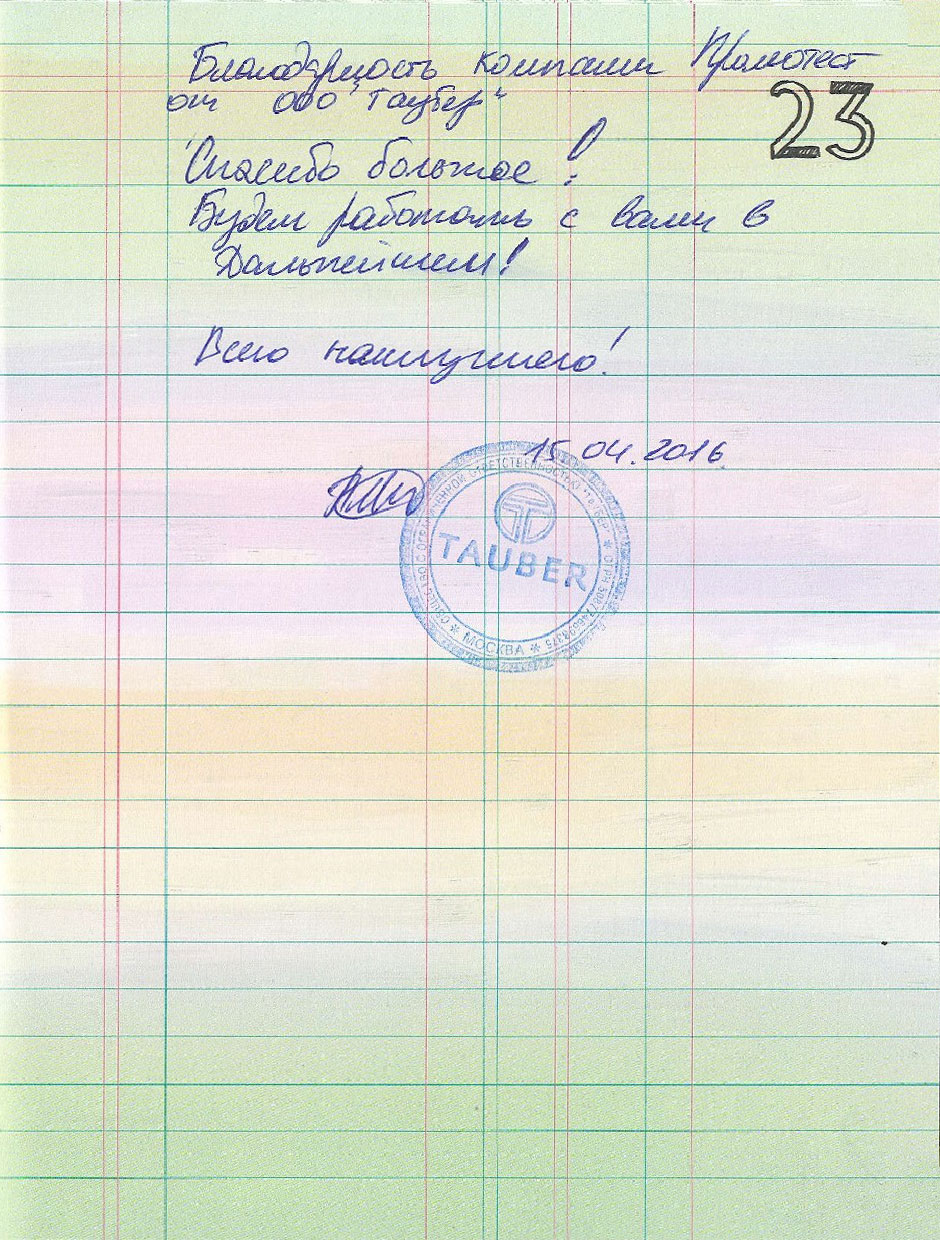 Благодарность компании Промотест
23
от ООО "Таубер"
Спасибо большое!
Будем работать с вами в
Дальнейшем!
Всего наилучшего!
15.04.2016
ОБЩЕСТВО С ОГРАНИЧЕННОЙ ОТВЕТСТВЕННОСТЬЮ "ТАУБЕР" * ОГРН
TAUBER
* МОСКВА *